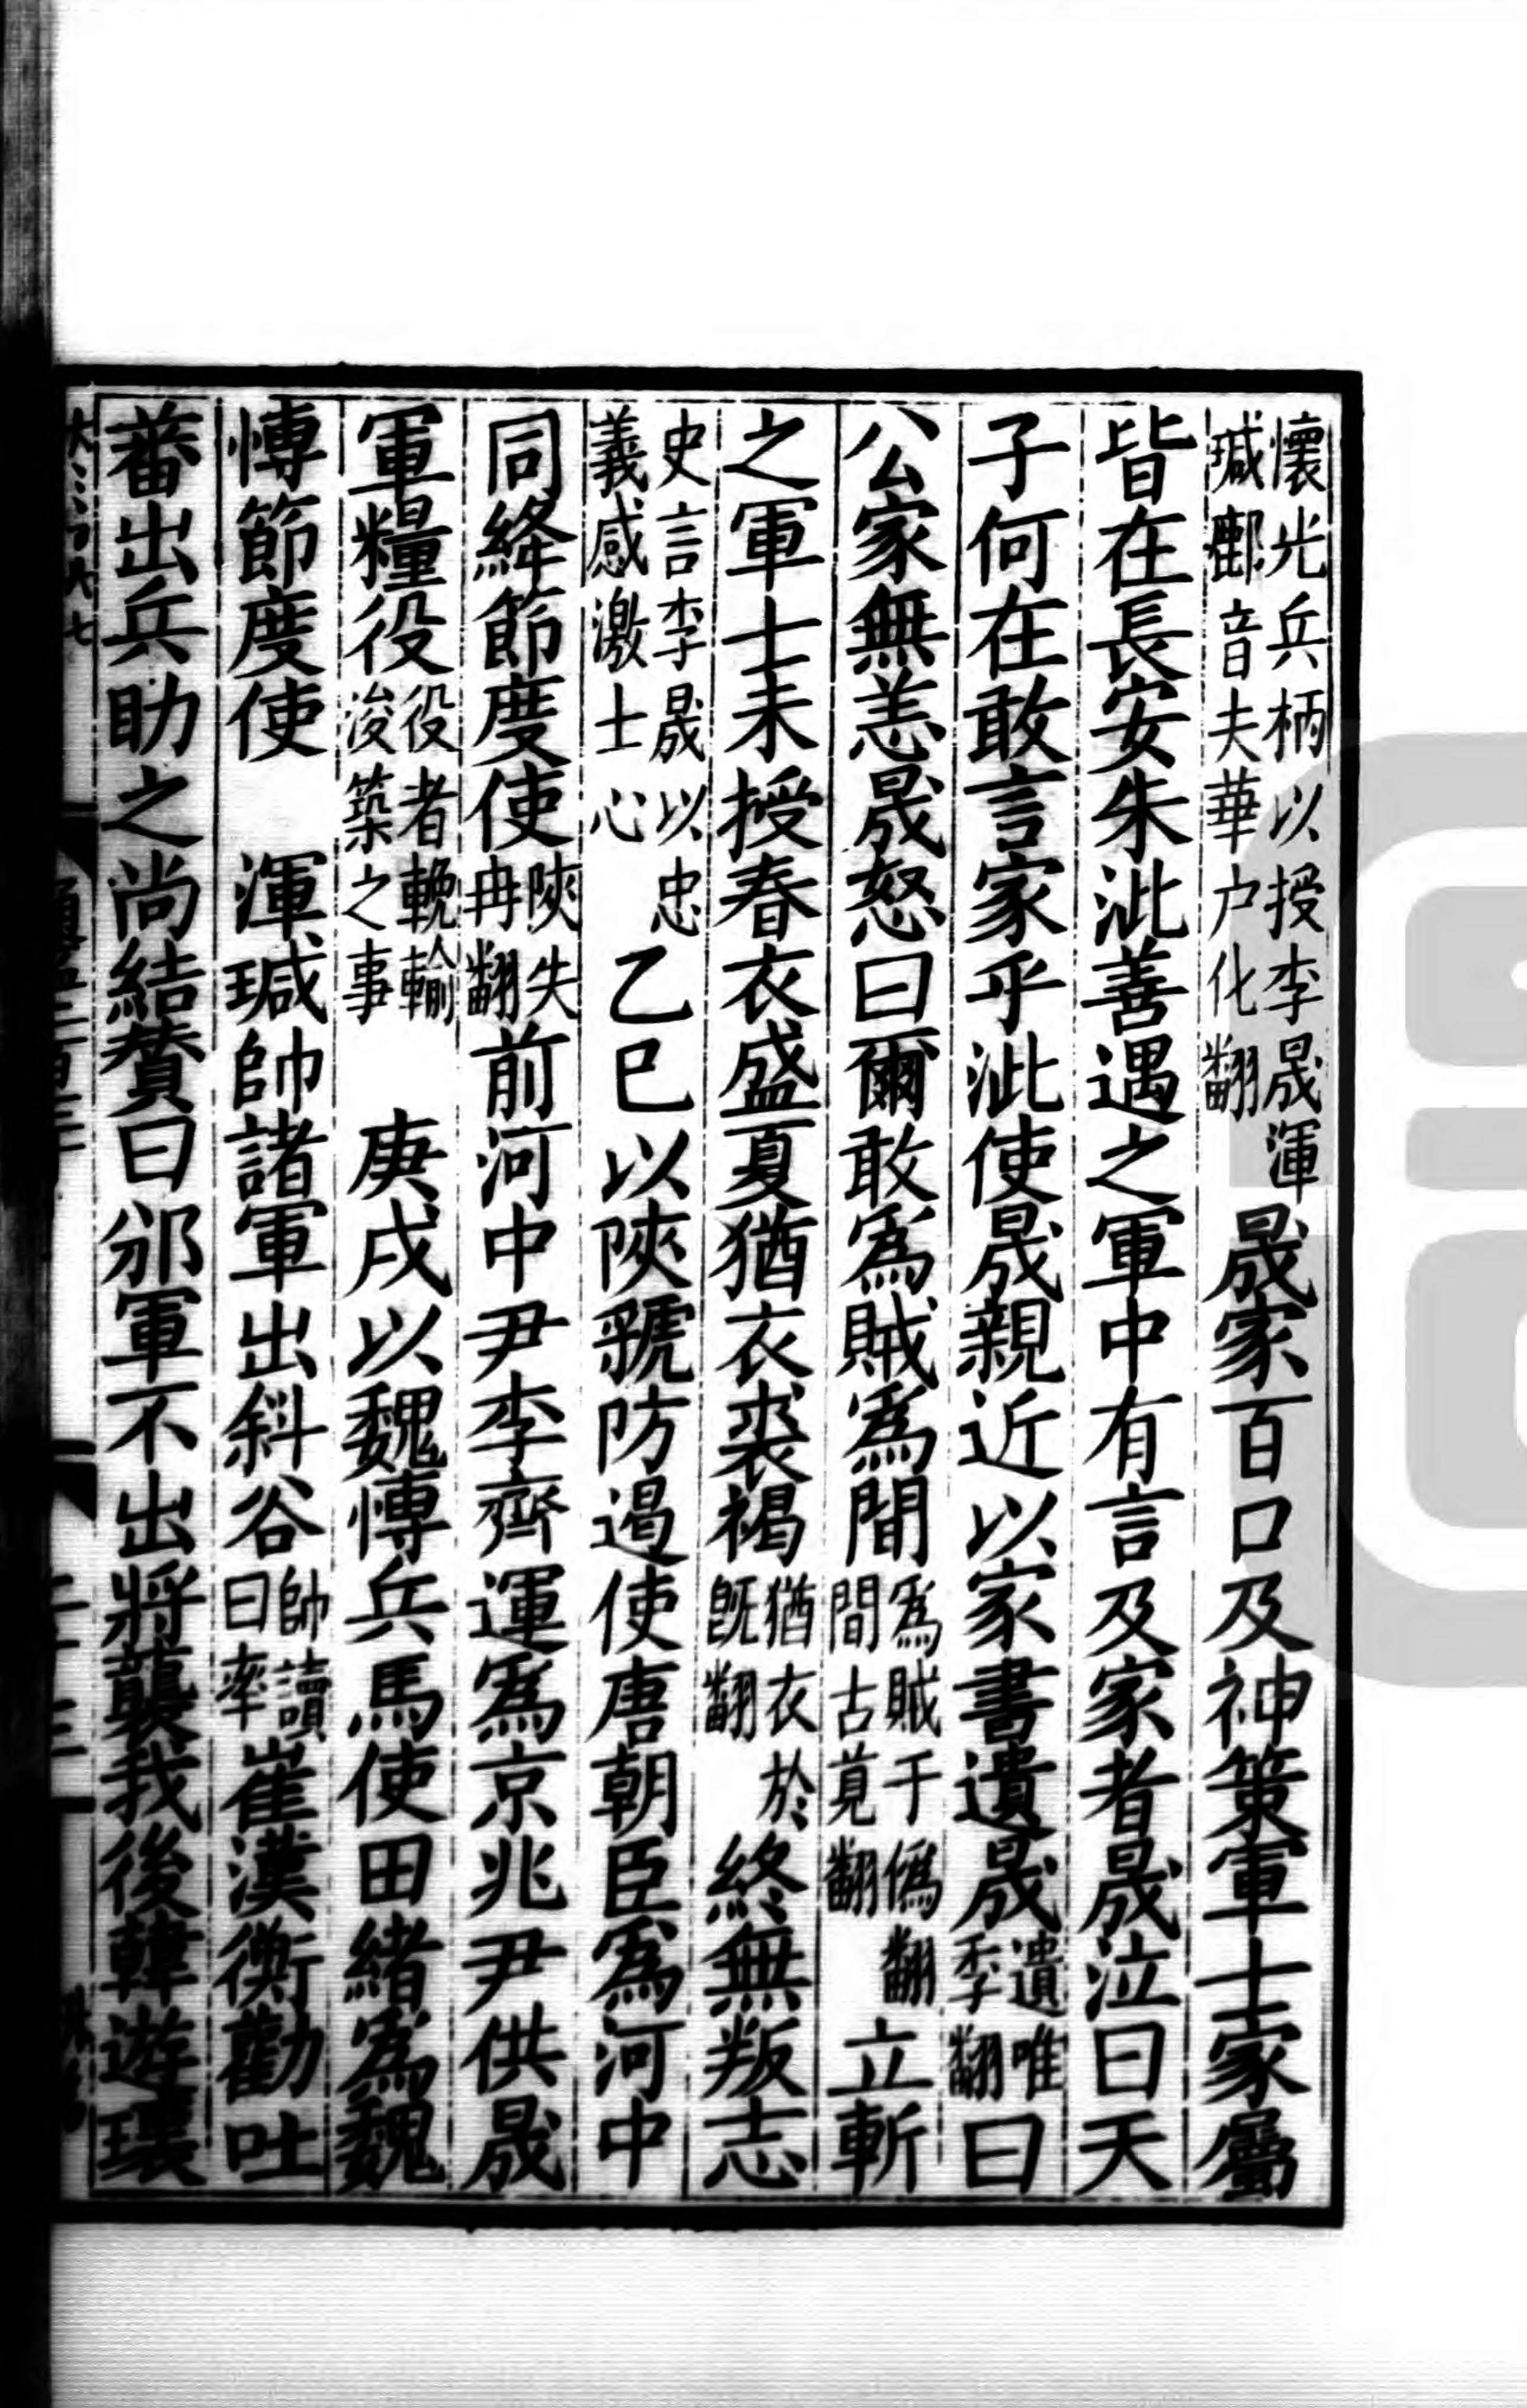 懷光兵柄以授李晟渾瑊鄜音夫華户化翻晟家百口及神策軍士家屬
皆在長安朱泚善遇之軍中有言及家者晟泣曰天
子何在敢言家乎泚使晟親近以家書遺晟遺唯季翻曰
公家無恙晟怒曰爾敢爲賊爲間爲賊于僞翻間古莧翻立斬
之軍士未授春衣盛夏猶衣裘褐猶衣於旣翻終無叛志
史言李晟以忠義感激士心乙巳以陝虢防遏使唐朝臣爲河中
同絳節度使陝失冉翻前河中尹李齊運爲京兆尹供晟
軍糧役役者輓輸浚築之事庚戌以魏博兵馬使田緒爲魏
博節度使渾瑊帥諸軍出斜谷帥讀曰率崔漢衡勸吐
蕃出兵助之尚結贊曰邠軍不出將襲我後韓遊瓌